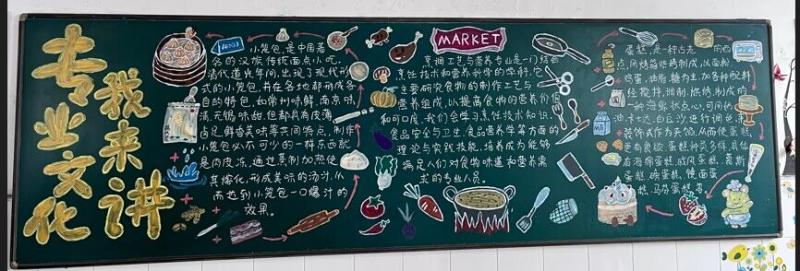 专业文化
我来讲
小笼包,是中国著
名的汉族传统面点小吃,
清代道光年间,出现了现代形
式的小笼包,并在各地都形成各
自的特色,如常州味鲜,南京味
清,无锡味甜,但都具有皮薄
卤足鲜香美味等共同特点,制作
小笼包必不可少的一样东西就
是肉皮冻,通过蒸制加热使
其熔化,形成美味的汤汁,从
而达到小笼包一口爆汁的
效果。
MARKET
烹调工艺与营养专业是一门结合
烹饪技术和营养科学的学科,它
主要研究食物的制作工艺与
营养组成,以提高食物的营养价值
和可口度,我们会学习烹饪技术知识,
食品安全与卫生,食品营养学等方面的
理论与实践技能,培养成为能够
满足人们对食物味道和营养需
求的专业人员。
蛋糕,是一种古老的西
点,用烤箱烘烤制成,以面粉、
鸡蛋、油脂、糖为主,加各种配料
经搅拌,调制,烘烤,制成的
一种海绵状点心,可用奶
油,卡士达
装饰或作为夹馅,从而使蛋糕
更有食欲,蛋糕种类多样,具体
有海绵蛋糕,戚风蛋糕,慕斯
蛋糕,磅蛋糕,镜面蛋
糕,马芬蛋糕等。